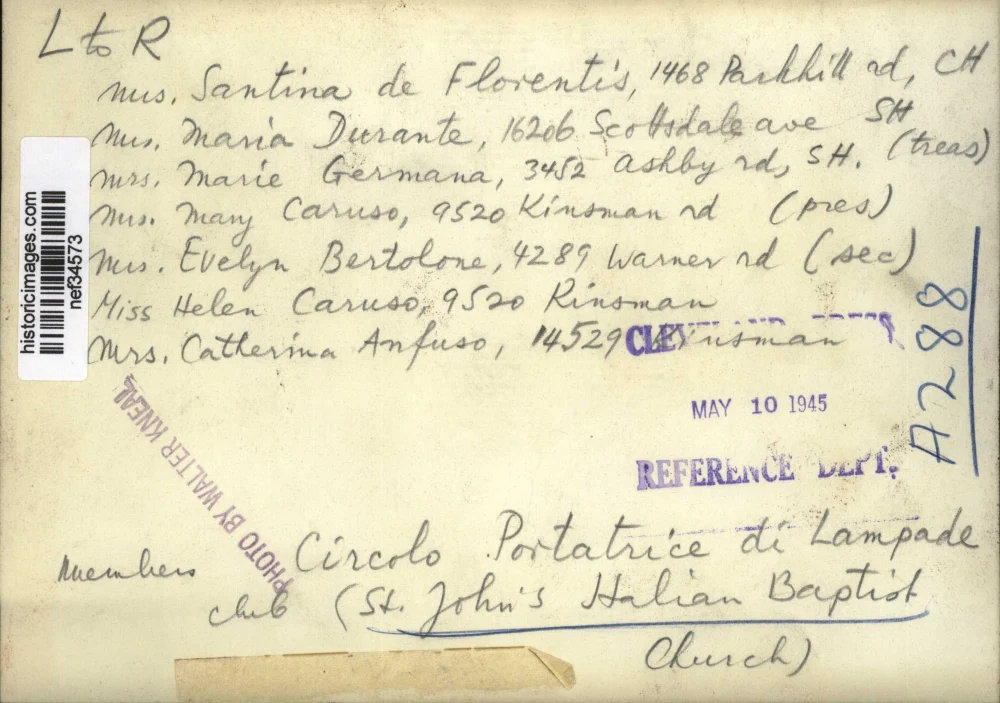 L to R
Mrs. Santina de Florentis, 1468 Parkhill rd, CH
Mrs. Maria Durante, 16206 Scottsdale ave SH
Mrs. Marie Germana, 3452 Ashby rd, SH. (treas)
Mrs. Mary Caruso, 9520 Kinsman rd (pres)
Mrs. Evelyn Bertolone, 4289 Warner rd (sec)
Miss Helen Caruso, 9520 Kinsman
Mrs. Catherina Anfuso, 14529 Kinsman
historicimages.com
nef34573
CLEVELAND PRESS
MAY 10 1945
REFERENCE DEPT.
A288
PHOTO BY WALTER KNEAL
Members Circolo Portatrice di Lampade
club (St. John's Italian Baptist
Church)